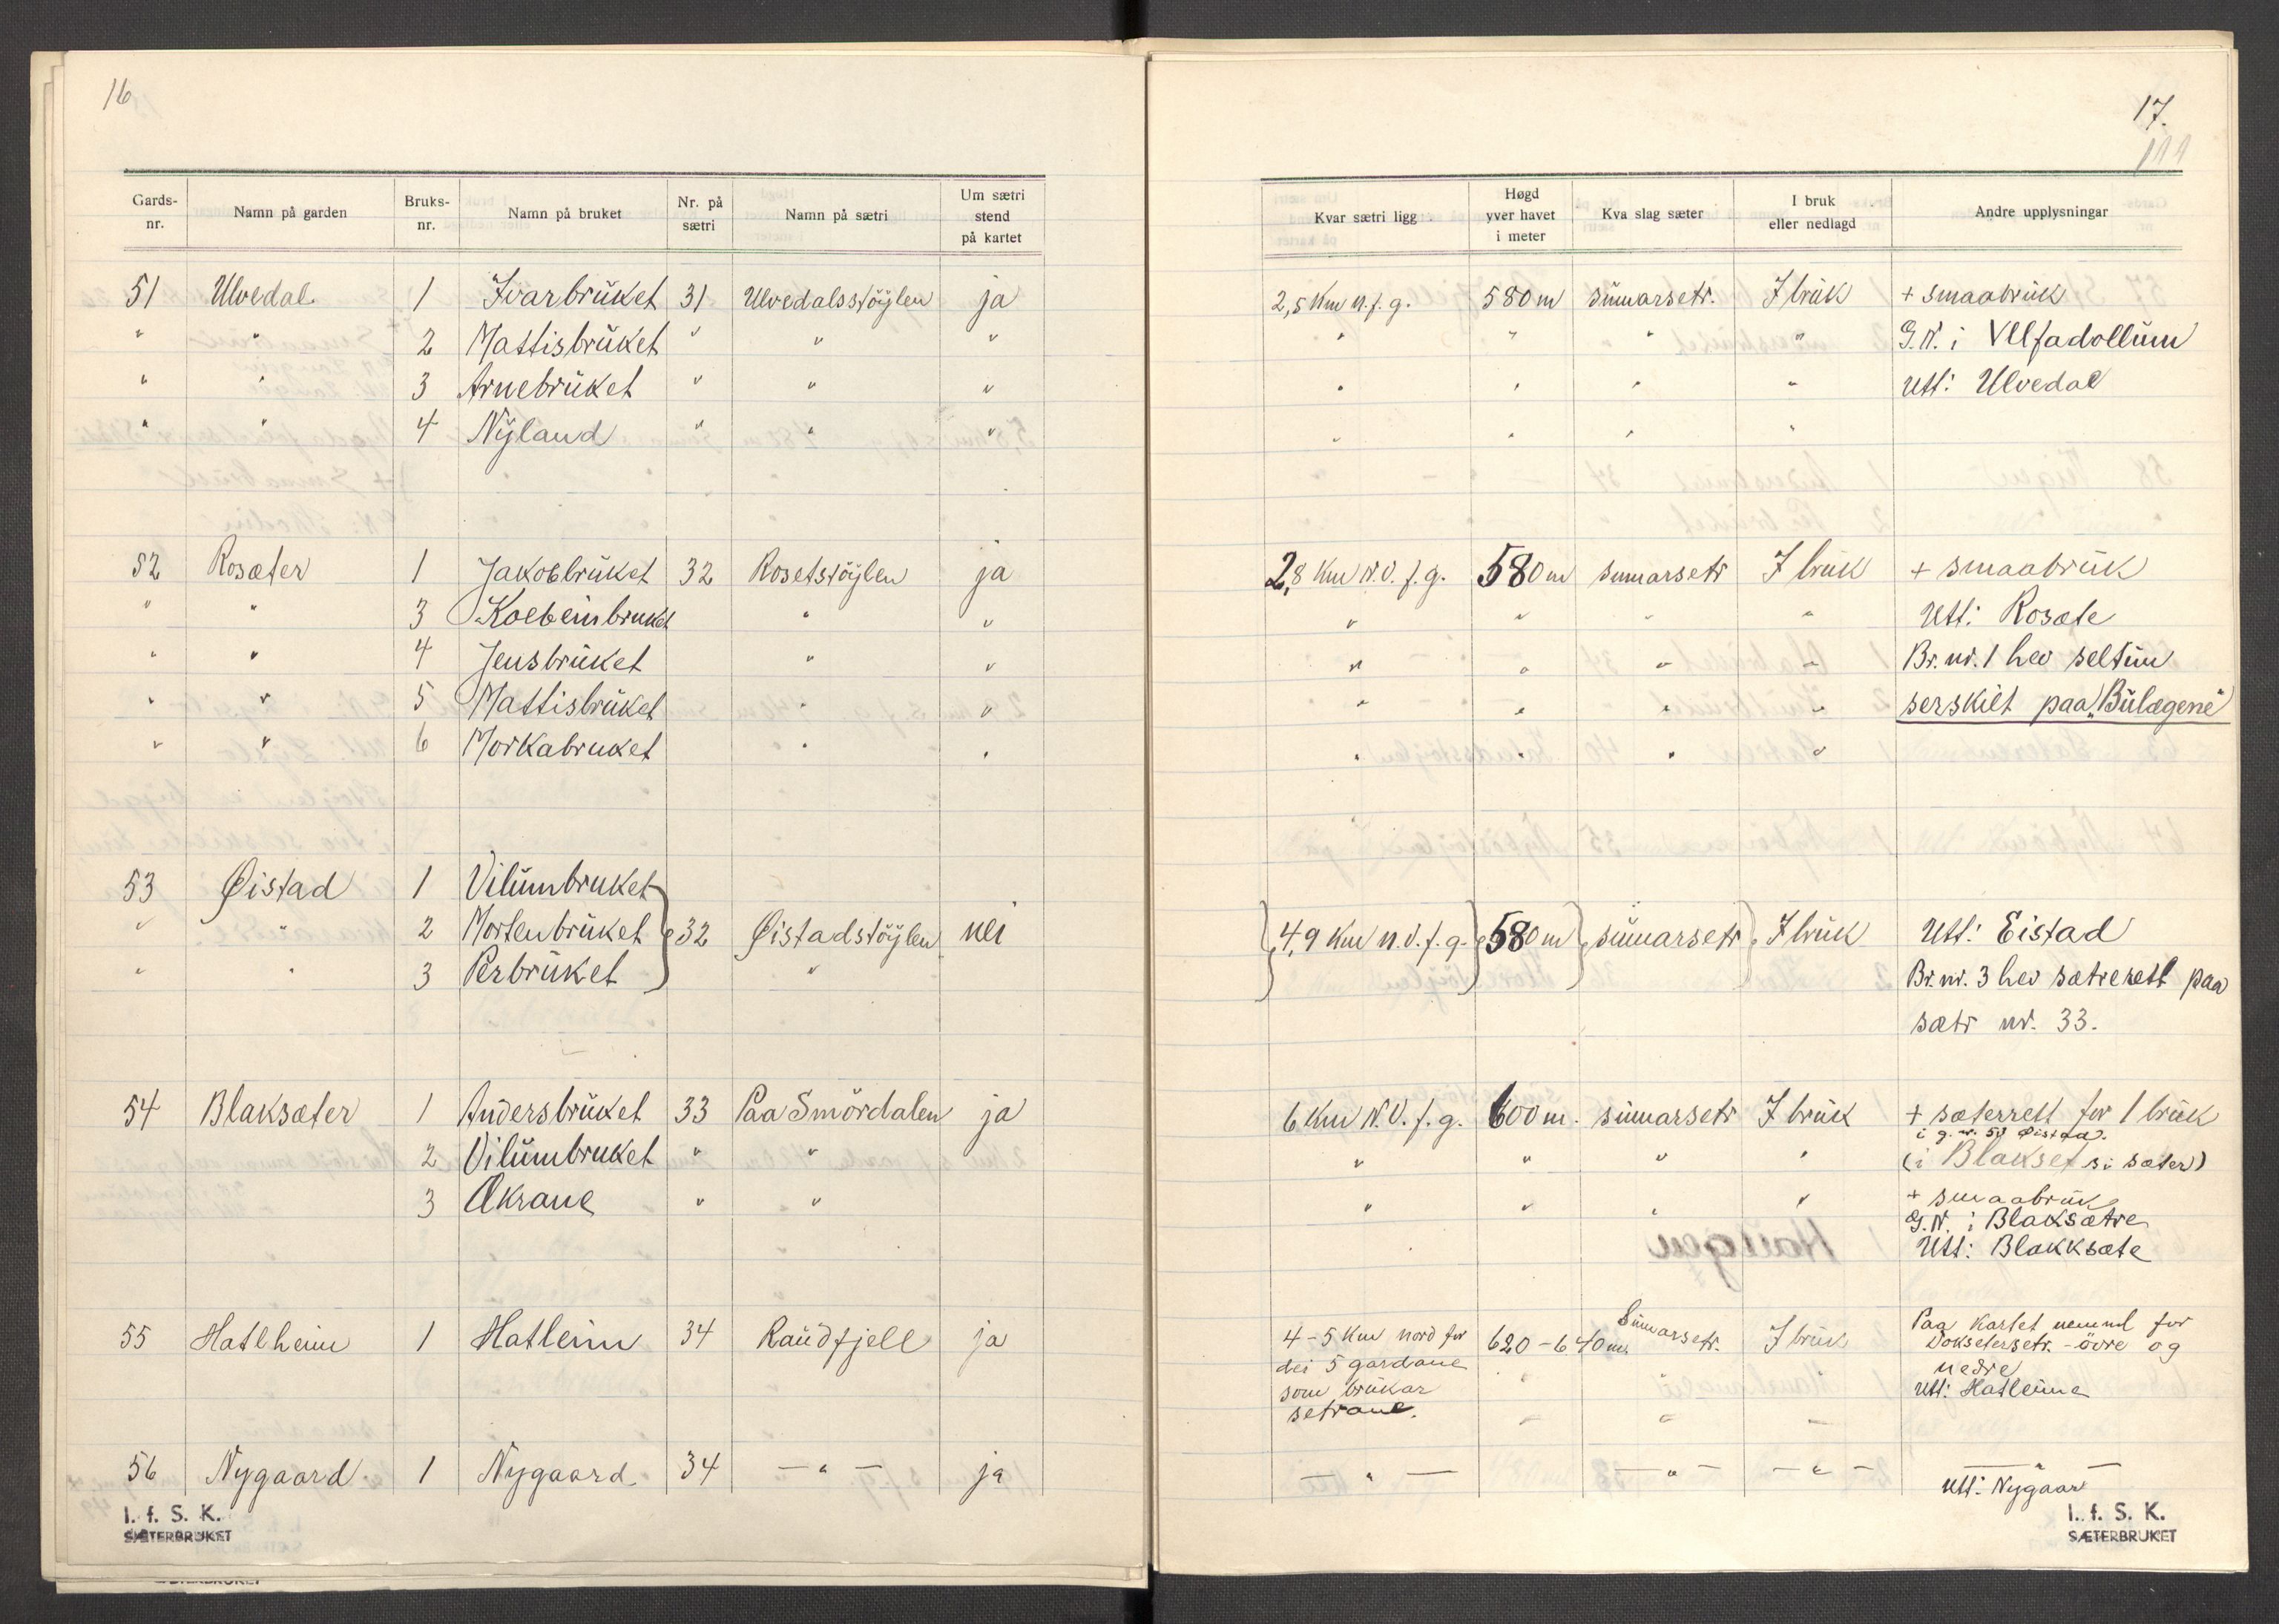 16
Gards-nr. Namn på garden Bruks-nr. Namn på bruket Nr. på sætri Namn på sætri Um sætri stend på kartet
51 Ulvedal 1 Ivarbrüket 31 Ulvedalsstöÿlen ja
" " 2 Mattisbrüket " " "
" " 3 Arnebrüket " " "
" " 4 Nÿland " " "
52 Rosæter 1 Jakobbrüket 32 Rosetstöÿlen ja
" " 3 Kolbeinbruket " "
" " 4 Jensbrüket " "
" " 5 Mattisbrüket " "
" " 6 Morkabruket " "
53 Øistad 1 Vilümbruket
" " 2 Mortenbrüket } 32 Øistadstöÿlen nei
" " 3 Perbrüket "
54 Blaksæter 1 Andersbrüket 33 Paa Smördalen ja
2 Vilümbruket " "
3 Ækrane " "
55 Hatlheim 1 Hatleim 34 Raüdfjell ja
56 Nygaard 1 Nygaard 34 — " — ja
I. f. S. K.
SÆTERBRUKET
17.
111
Kvar sætri ligg Høgd yver havet i meter Kva slag sæter I bruk eller nedlagd Andre upplysningar
2,5 Km n.f.g. 580 m sümarsetr. I brük + smaabrük
" " " " G.N. i Vllfadollüm
" " " " Utt: Ulvedal
" " " "
2,8 Km N.V. f.g. 580 m sumarsetr I bruk + smaabrük
" " " " Utt: Rosæte
" " " " Br. nr. 1 hev seltün
" " " " serskilt paa „Bülægene"
" " " "
} 4,9 Km n.V.f.g. } 580 m } sümarsetr } I brük Utt: Eistad
Br. nr. 3 hev sætrerett paa
sætr nr. 33.
6 Km N.V. f.g. 600 m. sümarsetr I brük + sæterrett for 1 brük
i g. nr. 53 Øistad.
" " " " (i Blakset si sæter)
" " " " + smaabrük
G.N. i Blaksætre
Utt: Blakksæte
4-5 Km nord for 620-640 m. Sümarsetr. I brük Paa kartet nemnd for
dei 5 gardane Doksetersetr. - övre og
som brükar nedre
setrane. Utt: Hatleime
— " — — " — — " — — " —
Utt: Nygaar
I. f. S. K.
SÆTERBRUKET